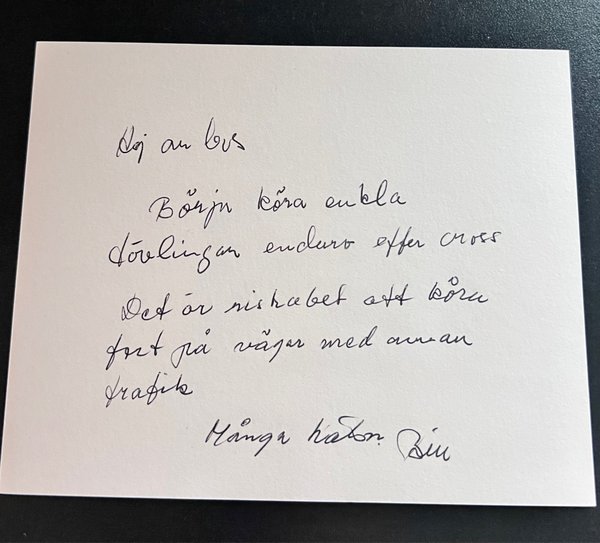 Hej
Börja köra enkla
tävlingar enduro eller cross
Det är riskabet att köra
fort på vägar med annan
trafik
Många